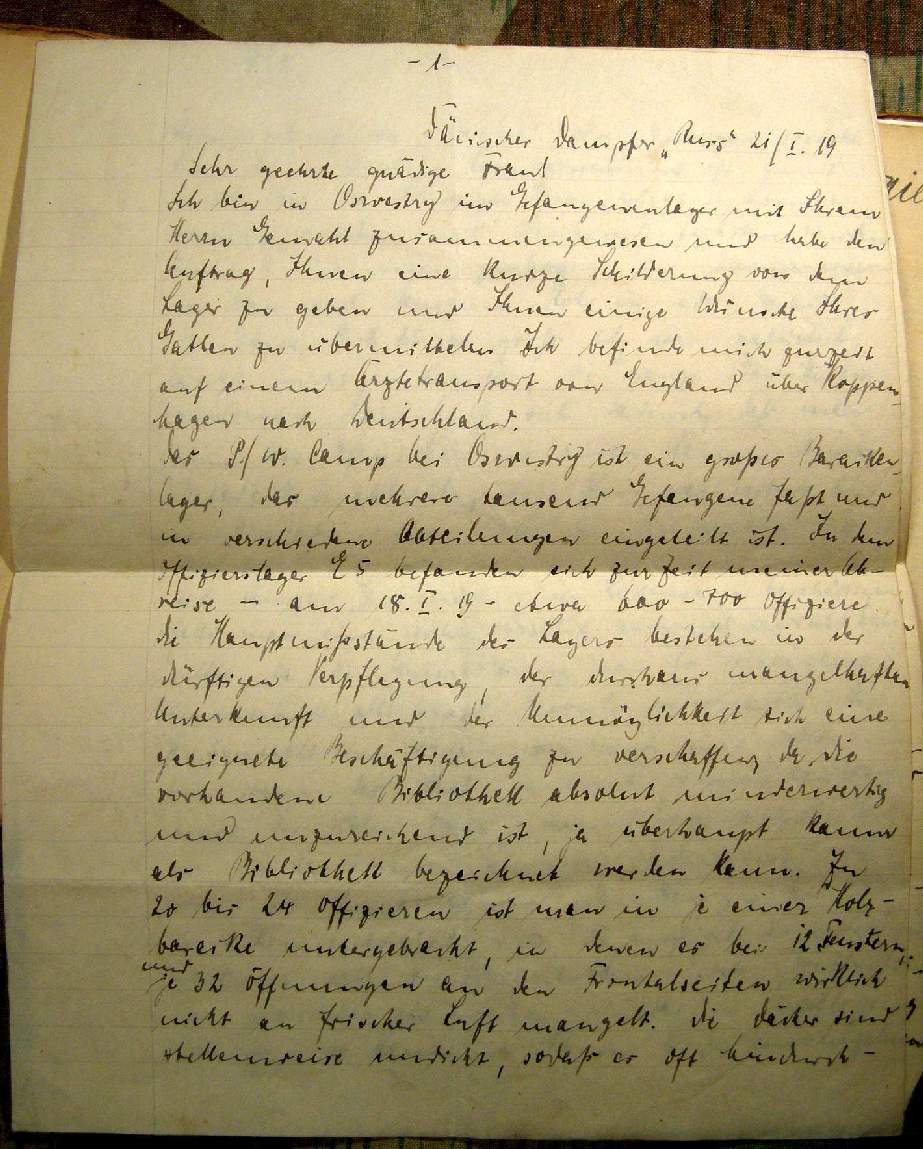 -1-
Dänischer Dampfer „Russ“ 21/I. 19
Sehr geehrte gnädige Frau!
Ich bin in Oswestry im Gefangenenlager mit Ihrem
Herrn Gemahl zusammengewesen und habe den
Auftrag, Ihnen eine kurze Schilderung von dem
Lager zu geben und Ihnen einige Wünsche Ihres
Gatten zu übermitteln. Ich befinde mich zurzeit
auf einem Ärztetransport von England über Koppen-
hagen nach Deutschland.
Das P/W. Camp bei Oswestry ist ein großes Baracken-
lager, das mehrere tausend Gefangene faßt und
in verschiedene Abteilungen eingeteilt ist. In dem
Offizierslager E 5 befanden sich zur Zeit meiner Ab-
reise - am 18. I. 19 - etwa 600 - 700 Offiziere.
Die Hauptmißstände des Lagers bestehen in der
dürftigen Verpflegung, der durchaus mangelhaften
Unterkunft und der Unmöglichkeit sich eine
geeignete Beschäftigung zu verschaffen, da die
vorhandene Bibliothek absolut minderwertig
und unzureichend ist, ja überhaupt kaum
als Bibliothek bezeichnet werden kann. Zu
20 bis 24 Offizieren ist man in je einer Holz-
baracke untergebracht, in denen es bei 12 Fenstern,
und
je 32 Öffnungen an den Frontalseiten wirklich
nicht an frischer Luft mangelt. Die Dächer sind
stellenweise undicht, sodaß es oft hindurch-